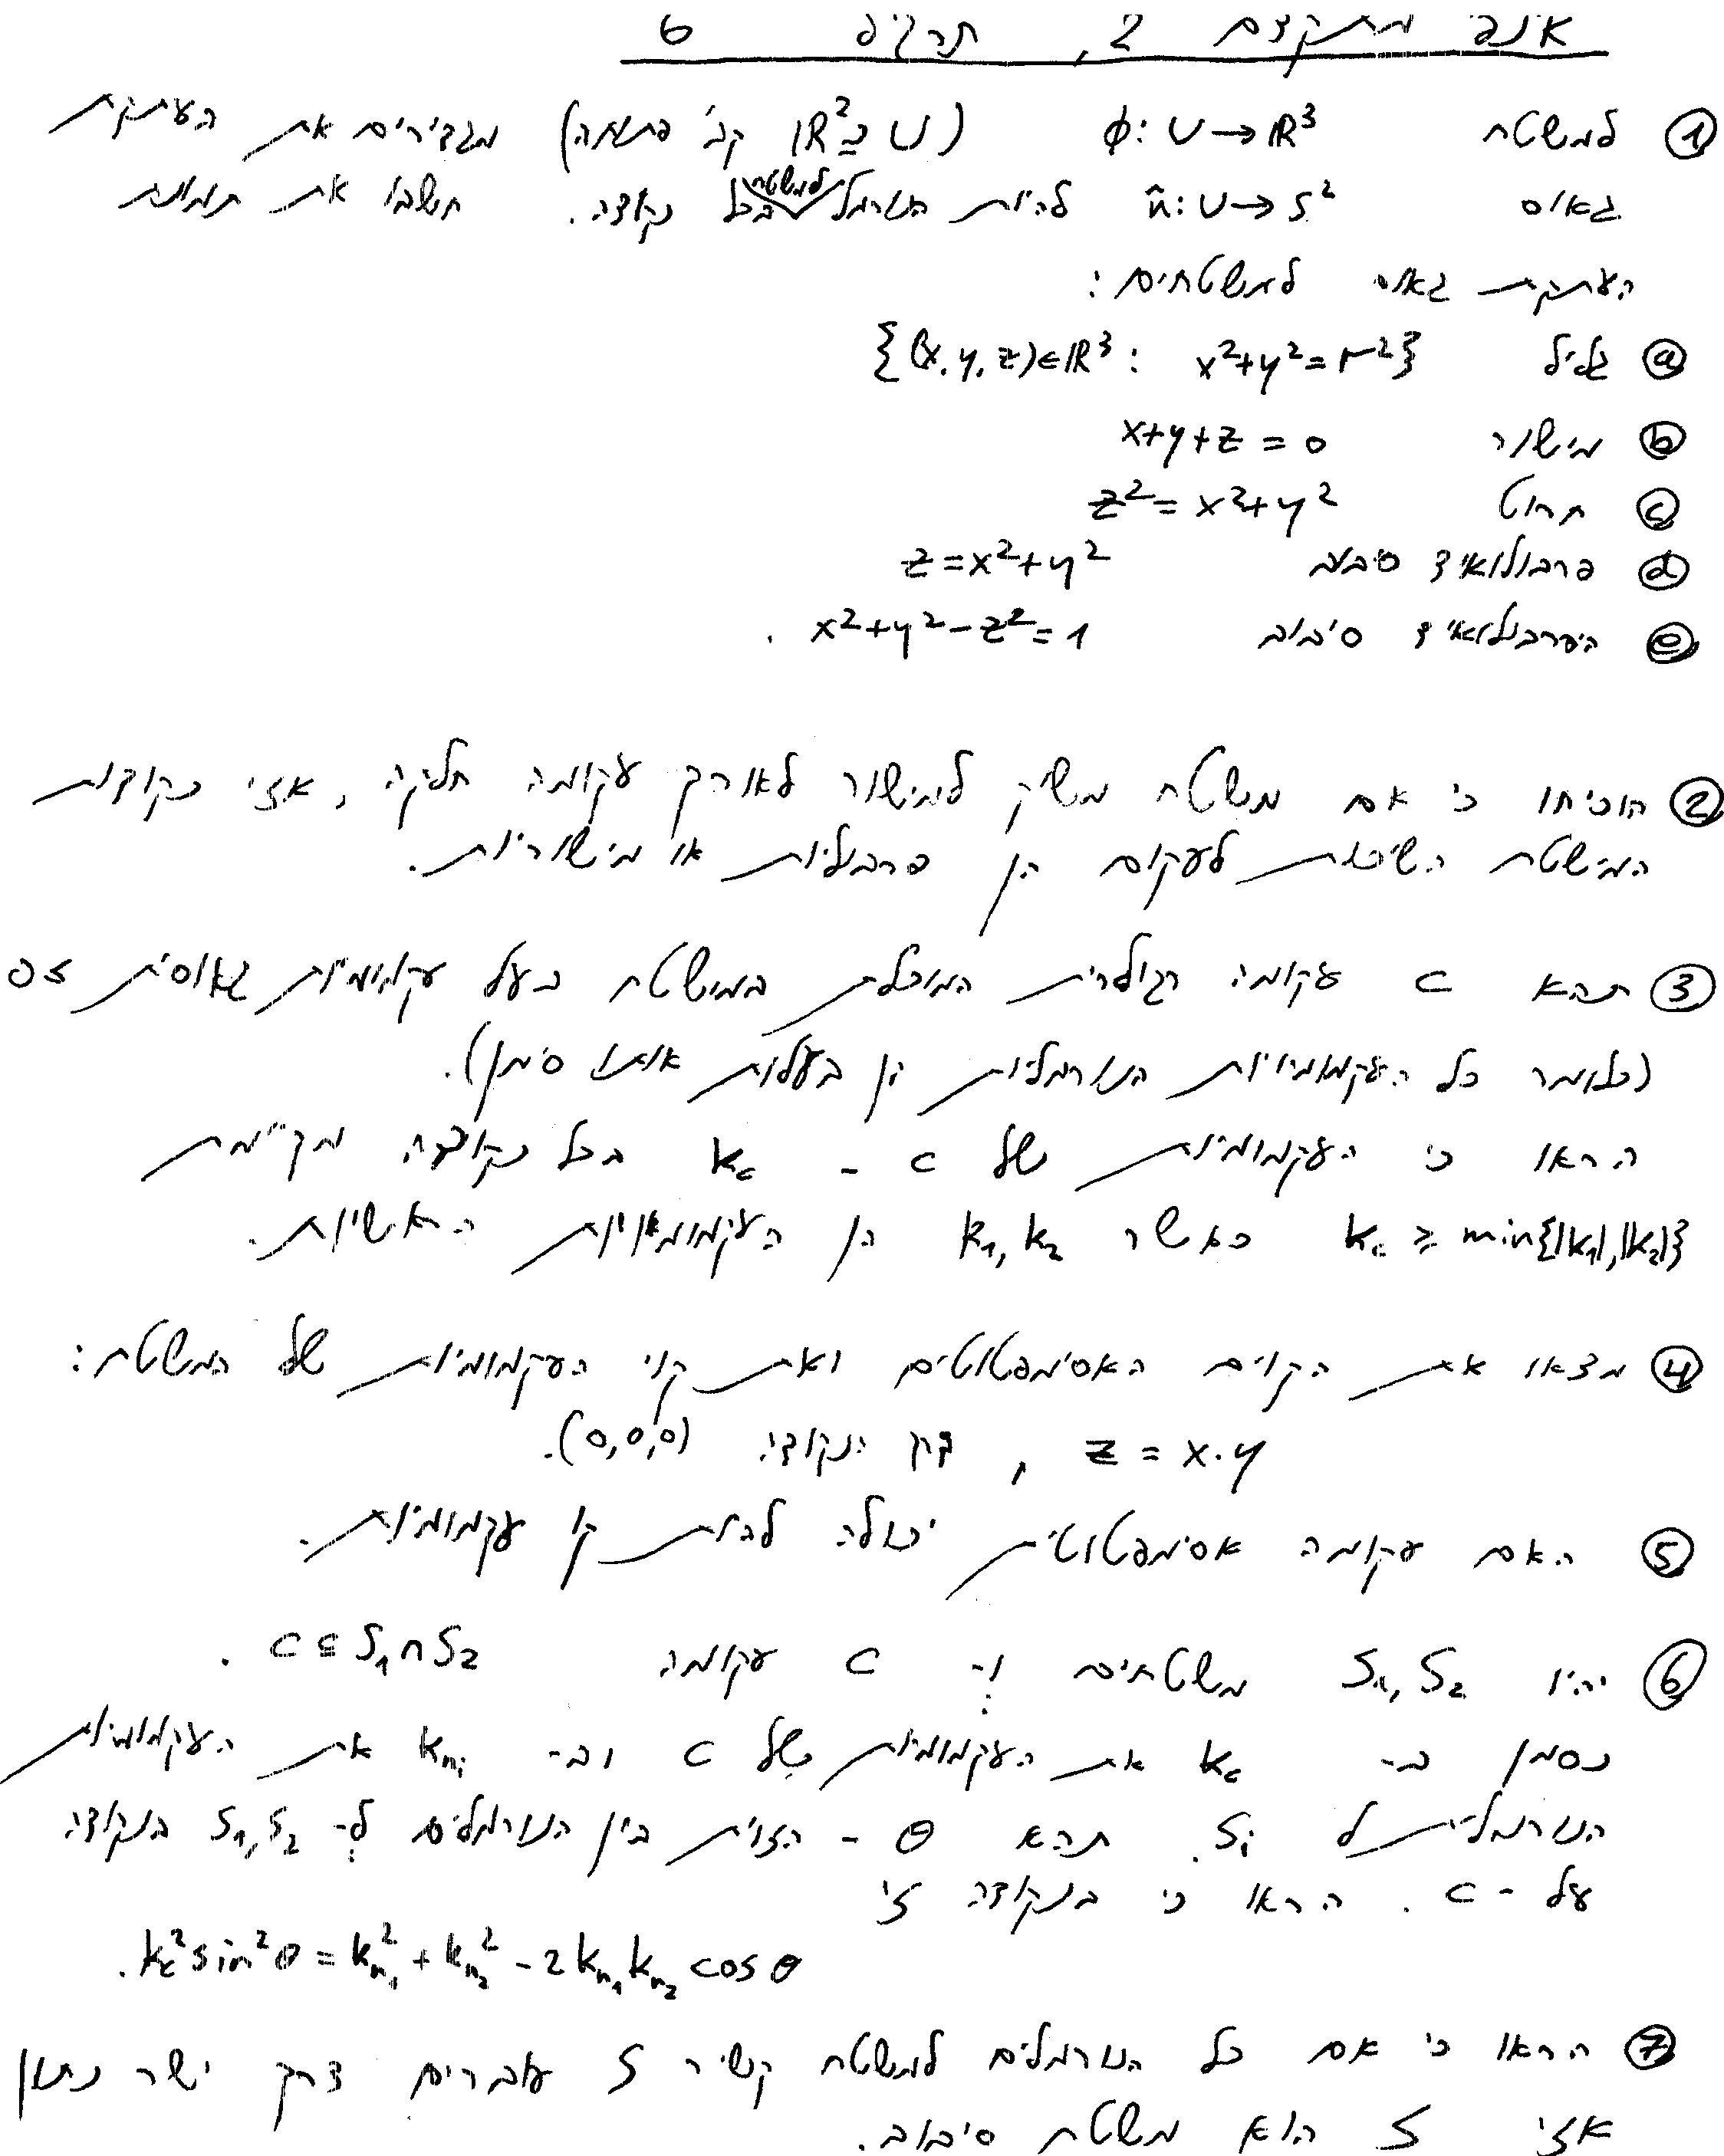 אינפי מתקדם 2, תרגיל 6
① למשטח φ: U→ℝ³ (U ⊆ ℝ² קב' פתוחה) מגדירים את העתקת
גאוס n̂: U→S² להיות הנורמל למשטח בכל נקודה. חשבו את תמונת
העתקת גאוס למשטחים:
ⓐ גליל {(x,y,z)∈ℝ³: x²+y²=r²}
ⓑ מישור x+y+z=0
ⓒ חרוט z²=x²+y²
ⓓ פרבולואיד סיבוב z=x²+y²
ⓔ היפרבולואיד סיבוב x²+y²-z²=1.
② הוכיחו כי אם משטח משיק למישור לאורך עקומה חלקה, אזי נקודות
המישטח השיכות לעקום הן פרבוליות או מישוריות.
③ תהא C עקומה רגולרית המוכלת במישטח בעל עקמומיות גאוסית >0
(כלומר כל העקמומיויות הנורמליות הן בעלות אותו סימן).
הראו כי העקמומיות של C - k_c בכל נקודה מקיימת
k_c ≥ min{|k₁|,|k₂|} כאשר k₁,k₂ הן העקמומיויות הראשיות.
④ מצאו את הקוים האסימפטוטים ואת קוי העקמומיות של המשטח:
z = x·y, דרך הנקודה (0,0,0).
⑤ האם עקומה אסימפטוטית יכולה להיות קו עקמומיות.
⑥ יהיו S₁,S₂ משטחים ו- C עקומה C ⊆ S₁∩S₂.
נסמן ב- k_c את העקמומיות של C וב- k_{n_i} את העקמומיות
הנורמלית ל S_i. תהא θ - הזוית בין הנורמלים ל- S₁,S₂ בנקודה
על - C. הראו כי בנקודה זו
k_c² sin²θ = k_{n₁}² + k_{n₂}² - 2k_{n₁}k_{n₂} cos θ.
⑦ הראו כי אם כל הנורמלים למשטח קשיר S עוברים דרך ישר נתון
אזי S הוא משטח סיבוב.